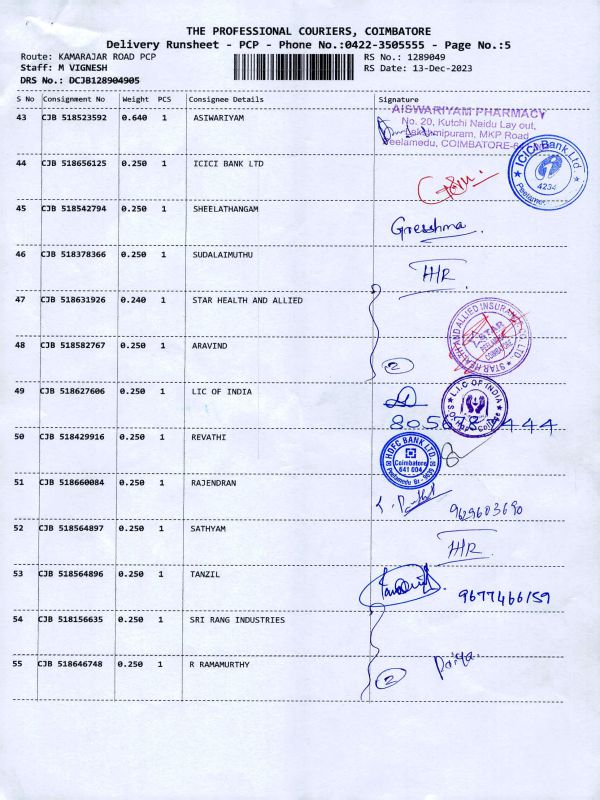 THE PROFESSIONAL COURIERS, COIMBATORE
Delivery Runsheet - PCP - Phone No.:0422-3505555 - Page No.:5
Route: KAMARAJAR ROAD PCP RS No.: 1289049
Staff: M VIGNESH RS Date: 13-Dec-2023
DRS No.: DCJB128904905
S No Consignment No Weight PCS Consignee Details Signature
43 CJB 518523592 0.640 1 ASIWARIYAM
AISWARIYAM PHARMACY
No. 20, Kutchi Naidu Lay out,
MKP Road
COIMBATORE
44 CJB 518656125 0.250 1 ICICI BANK LTD
ICICI Bank Ltd.
4234
45 CJB 518542794 0.250 1 SHEELATHANGAM Gresshma
46 CJB 518378366 0.250 1 SUDALAIMUTHU H/R
47 CJB 518631926 0.240 1 STAR HEALTH AND ALLIED
STAR HEALTH AND ALLIED INSURANCE CO. LTD
48 CJB 518582767 0.250 1 ARAVIND 2
49 CJB 518627606 0.250 1 LIC OF INDIA
L.I.C OF INDIA
50 CJB 518429916 0.250 1 REVATHI
HDFC BANK LTD.
Coimbatore
641 004
51 CJB 518660084 0.250 1 RAJENDRAN 9629603690
52 CJB 518564897 0.250 1 SATHYAM H/R
53 CJB 518564896 0.250 1 TANZIL 9677466159
54 CJB 518156635 0.250 1 SRI RANG INDUSTRIES
55 CJB 518646748 0.250 1 R RAMAMURTHY 2